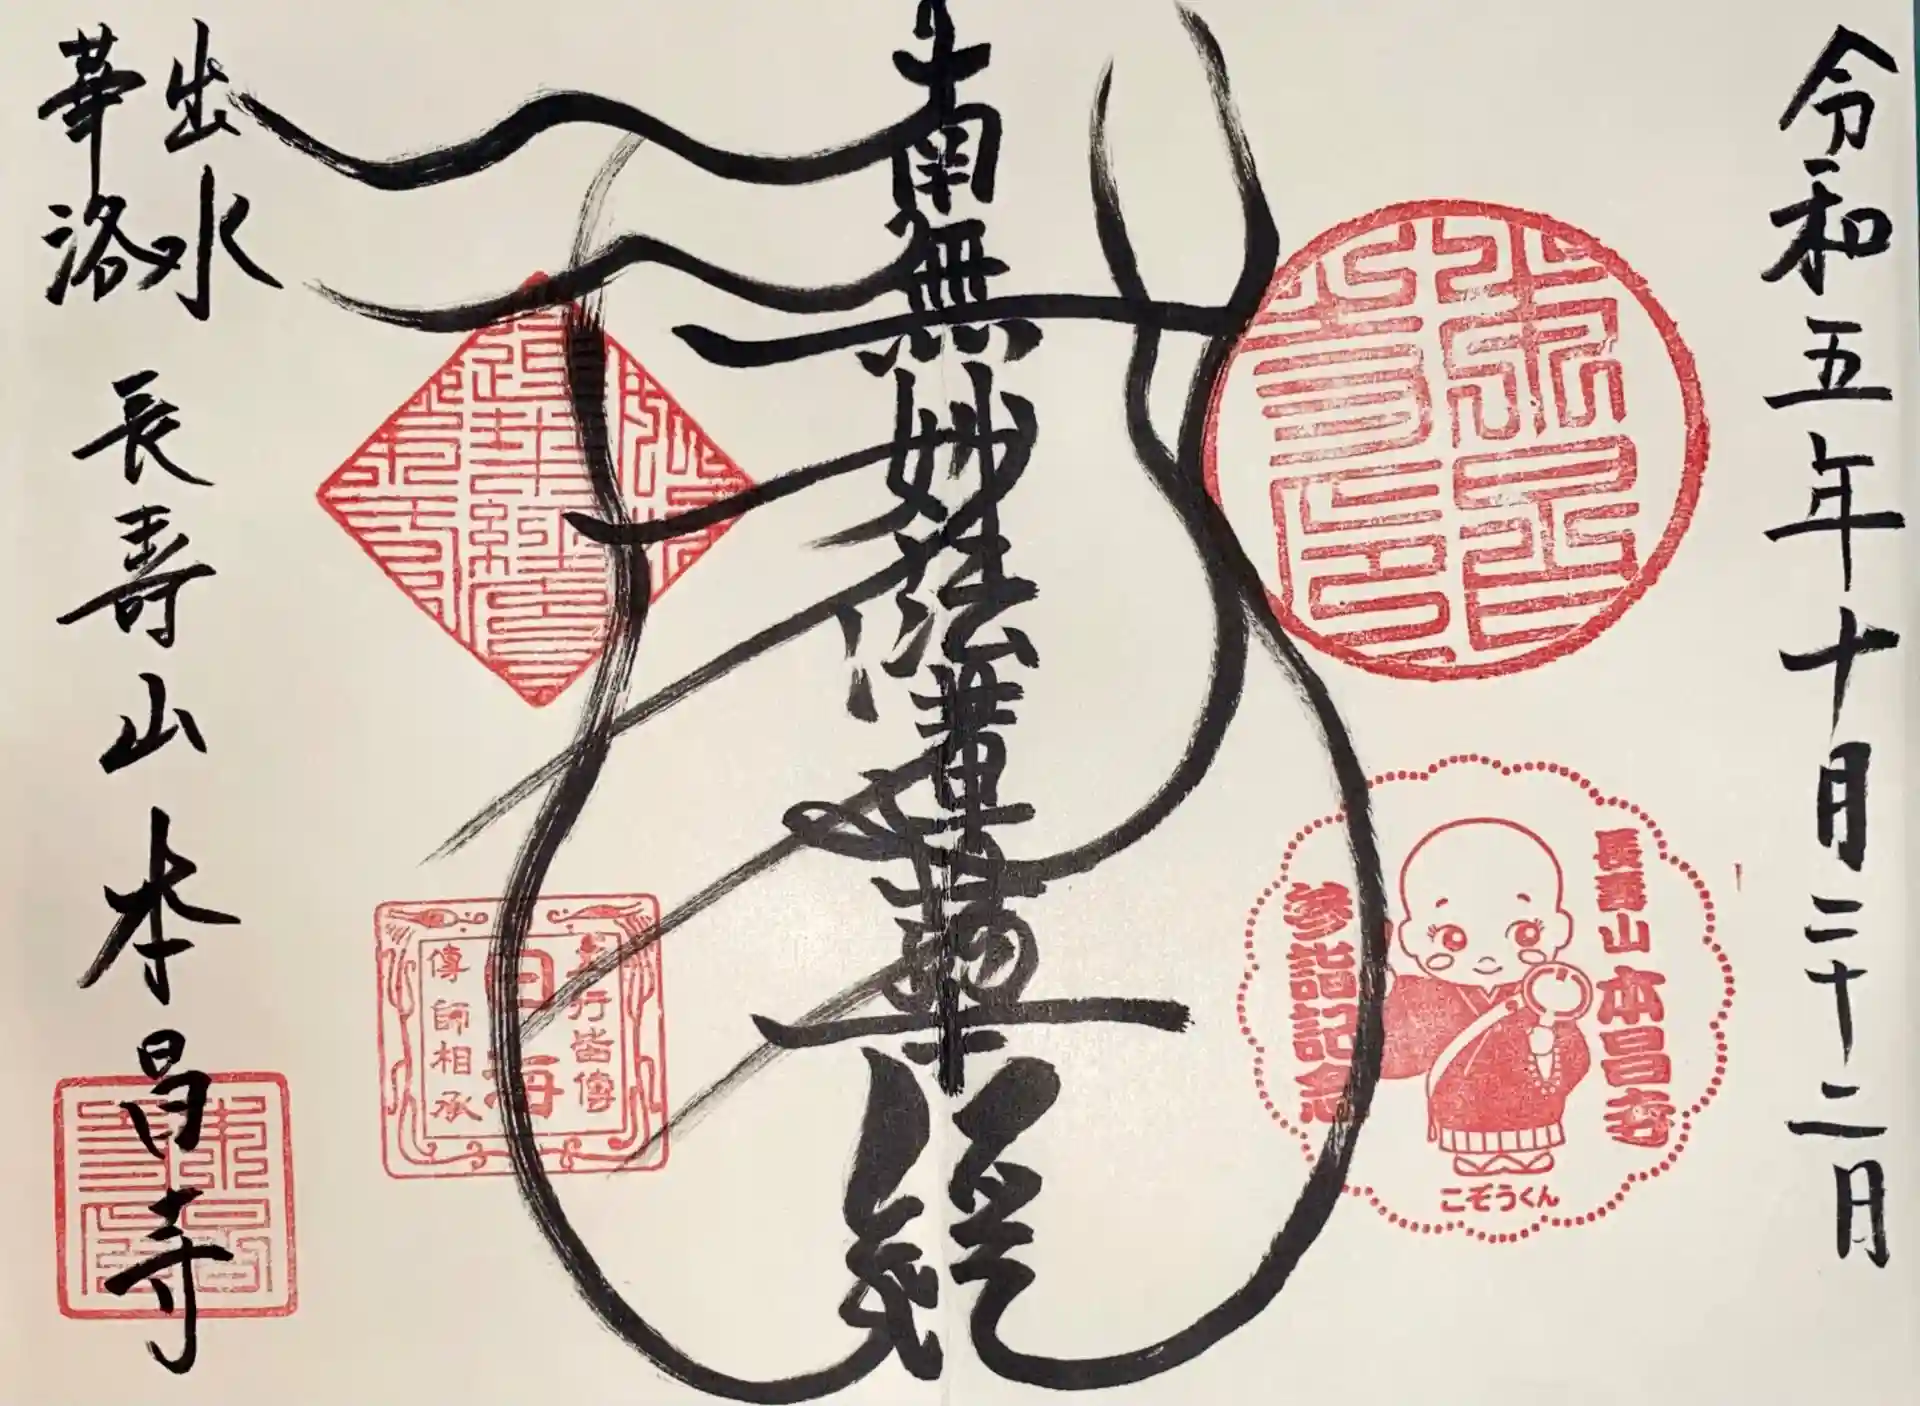 令和五年十月二十二月
長壽山本昌寺
参詣記念
こぞうくん
南無妙法蓮華経
行皆傳
日海
傳師相承
出水
華洛
長壽山本昌寺